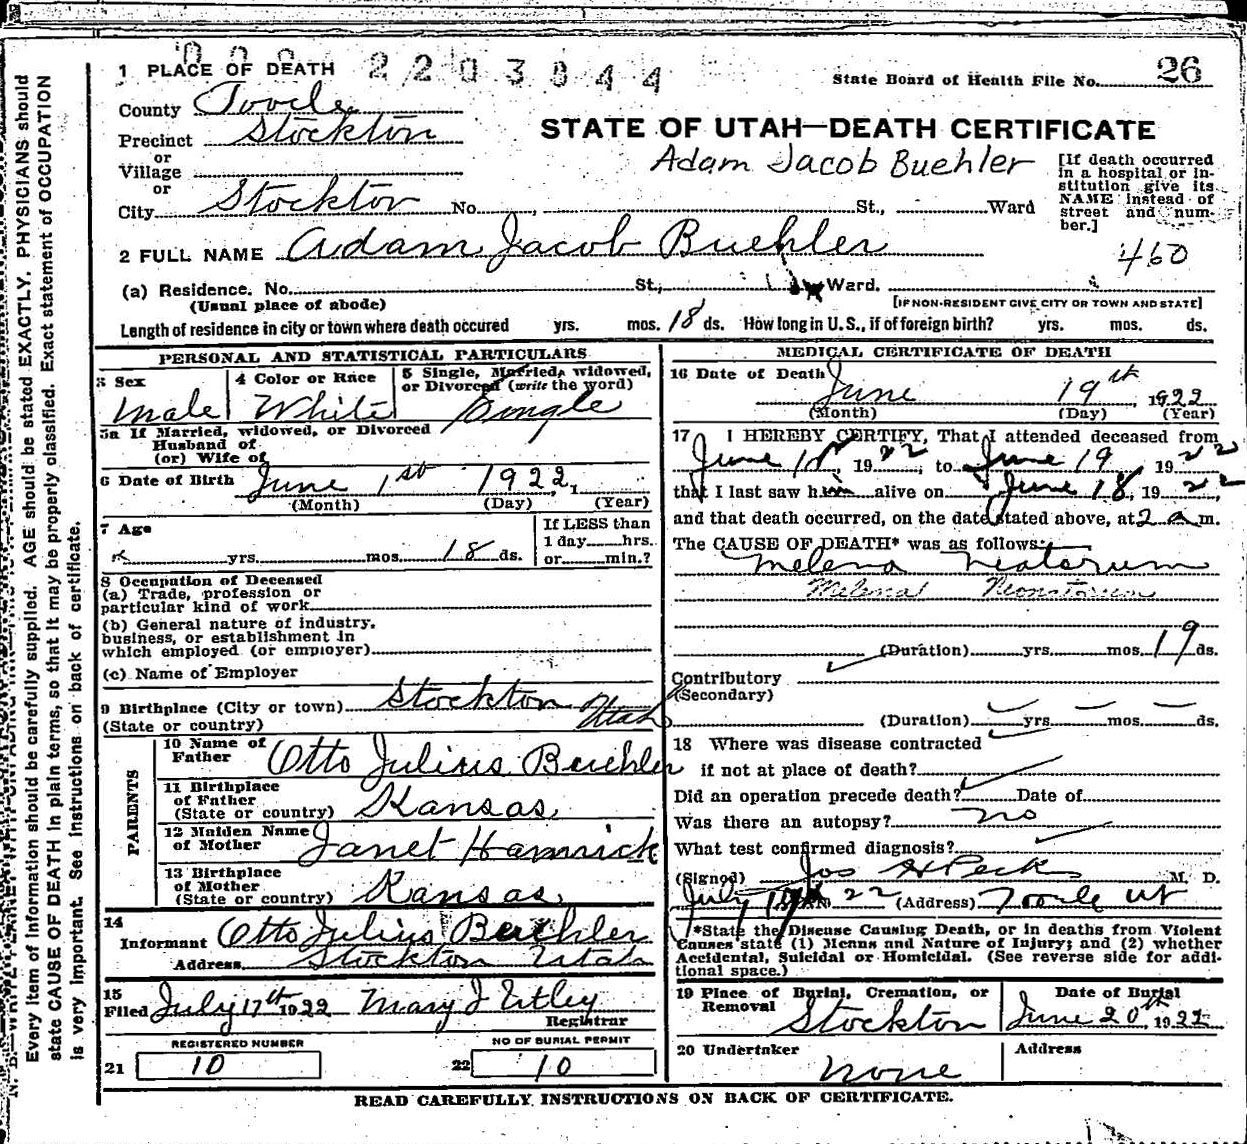 2203844
1 PLACE OF DEATH
State Board of Health File No. 26
County Tooele
Precinct Stockton
or
Village
or
City Stockton No. , St., Ward
STATE OF UTAH—DEATH CERTIFICATE
Adam Jacob Buehler
[If death occurred in a hospital or in-
stitution give its
NAME instead of
street and num-
ber.]
2 FULL NAME Adam Jacob Buehler
460
(a) Residence. No. St., Ward.
(Usual place of abode)
[IF NON-RESIDENT GIVE CITY OR TOWN AND STATE]
Length of residence in city or town where death occured yrs. mos. 18 ds. How long in U. S., if of foreign birth? yrs. mos. ds.
PERSONAL AND STATISTICAL PARTICULARS
3 Sex
Male
4 Color or Race
White
5 Single, Married, widowed,
or Divorced (write the word)
Single
5a If Married, widowed, or Divorced
Husband of
(or) Wife of
6 Date of Birth June 1st 1922
(Month) (Day) (Year)
7 Age
yrs. mos. 18 ds.
If LESS than
1 day hrs.
or min.?
8 Occupation of Deceased
(a) Trade, profession or
particular kind of work
(b) General nature of industry,
business, or establishment in
which employed (or employer)
(c) Name of Employer
9 Birthplace (City or town) Stockton
(State or country) Utah
PARENTS
10 Name of
Father Otto Julius Buehler
11 Birthplace
of Father
(State or country) Kansas
12 Maiden Name
of Mother Janet Hamrick
13 Birthplace
of Mother
(State or country) Kansas
14
Informant Otto Julius Buehler
Address Stockton Utah
15
Filed July 17th 1922 Mary J Utley
Registrar
REGISTERED NUMBER
21 10
NO OF BURIAL PERMIT
22 10
MEDICAL CERTIFICATE OF DEATH
16 Date of Death June 19th, 1922
(Month) (Day) (Year)
17 I HEREBY CERTIFY, That I attended deceased from
June , 1922, to June 19, 1922
that I last saw him alive on June 18, 1922,
and that death occurred, on the date stated above, at 2 a m.
The CAUSE OF DEATH* was as follows:
Melena Neatorum
Melena Neonatorum
(Duration) yrs. mos. 19 ds.
Contributory
(Secondary)
(Duration) yrs. mos. ds.
18 Where was disease contracted
if not at place of death?
Did an operation precede death? Date of
Was there an autopsy? no
What test confirmed diagnosis?
(Signed) Jos H Peck M. D.
July 22 (Address) Tooele Ut
*State the Disease Causing Death, or in deaths from Violent
Causes state (1) Means and Nature of Injury; and (2) whether
Accidental, Suicidal or Homicidal. (See reverse side for addi-
tional space.)
19 Place of Burial, Cremation, or
Removal
Stockton
Date of Burial
June 20th 1922
20 Undertaker
none
Address
READ CAREFULLY INSTRUCTIONS ON BACK OF CERTIFICATE.
Every item of information should be carefully supplied. AGE should be stated EXACTLY. PHYSICIANS should
state CAUSE OF DEATH in plain terms, so that it may be properly classified. Exact statement of OCCUPATION
is very important. See instructions on back of certificate.